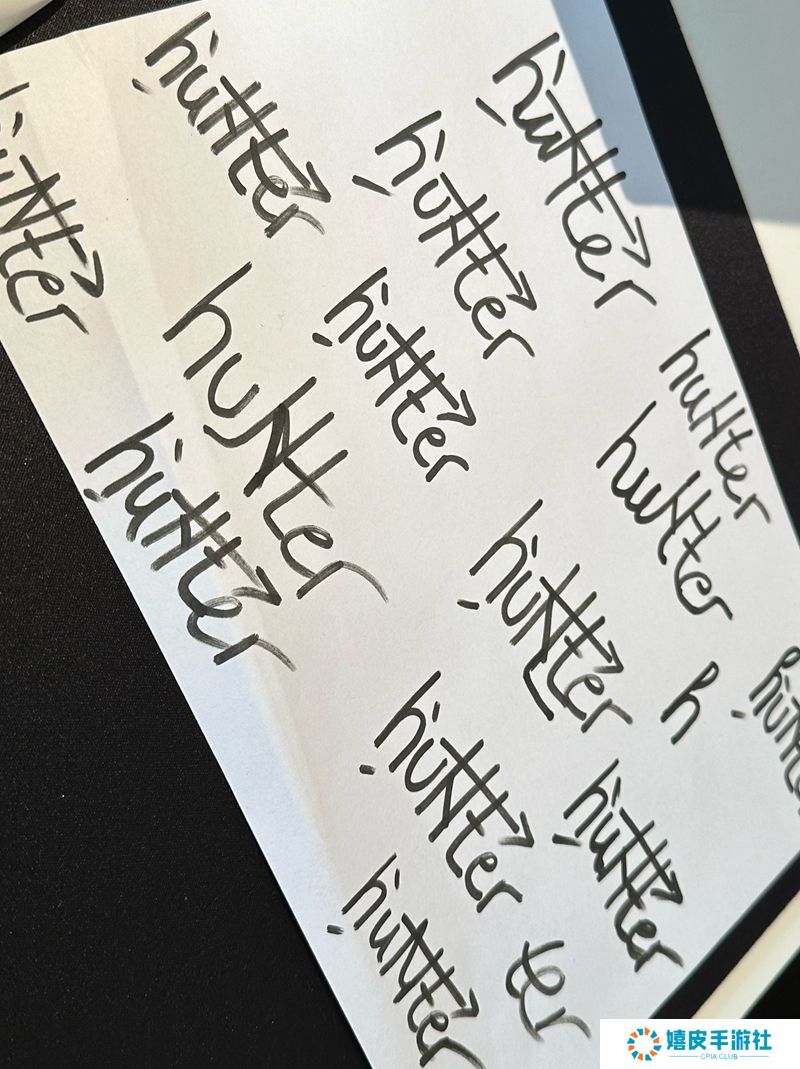 hunter
hunter
hunter
hunter
hunter
hunter
hunter
hunter
hunter
hunter
hunter
h
hunte
hunter
hunter
hunter
ter
嬉皮手游社
CPIA.CLUB